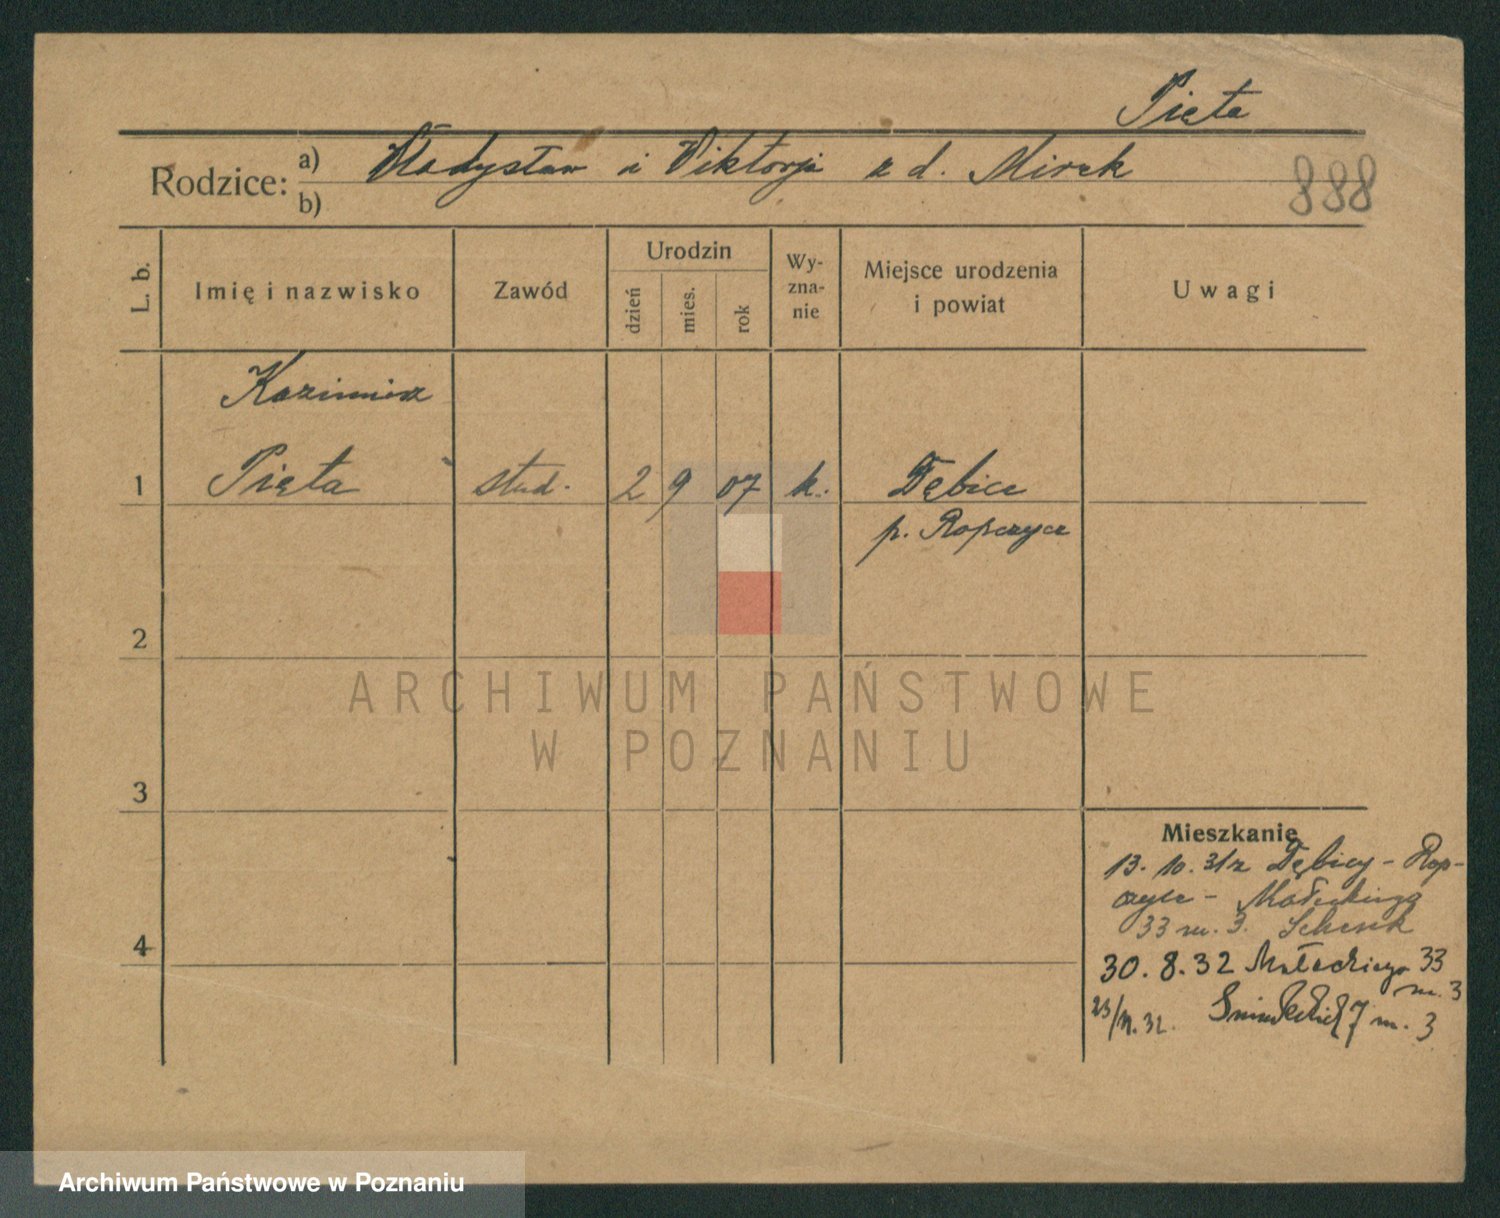 Pięta
Rodzice: a) Władysław i Viktorja z d. Mirek
b)
888
L. b.
Imię i nazwisko
Zawód
Urodzin
dzień
mies.
rok
Wy-
zna-
nie
Miejsce urodzenia
i powiat
Uwagi
Kazimierz
1 Pięta stud. 2 9 07 k. Dębica
p. Ropczyce
2
3
4
Mieszkanie
13. 10. 31 z Dębicy - Rop-
czyce - Małeckiego
33 m. 3. Schenk
30. 8. 32 Małeckiego 33
m. 3
32. 7 m. 3
ARCHIWUM PAŃSTWOWE
W POZNANIU
Archiwum Państwowe w Poznaniu